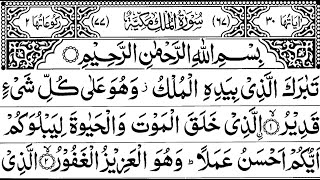 اٰيَاتُهَا ٣٠ (٦٧) سُوْرَةُ الْمُلْكِ مَكِّيَّةٌ (٧٧) رُكُوْعَاتُهَا ٢
بِسْمِ اللّٰهِ الرَّحْمٰنِ الرَّحِيْمِ ۝
تَبٰرَكَ الَّذِيْ بِيَدِهِ الْمُلْكُ ز وَهُوَ عَلٰى كُلِّ شَيْءٍ
قَدِيْرُۨ ۝١ۙ الَّذِيْ خَلَقَ الْمَوْتَ وَالْحَيٰوةَ لِيَبْلُوَكُمْ
اَيُّكُمْ اَحْسَنُ عَمَلًا ؕ وَهُوَ الْعَزِيْزُ الْغَفُوْرُ ۝٢ۙ الَّذِيْ